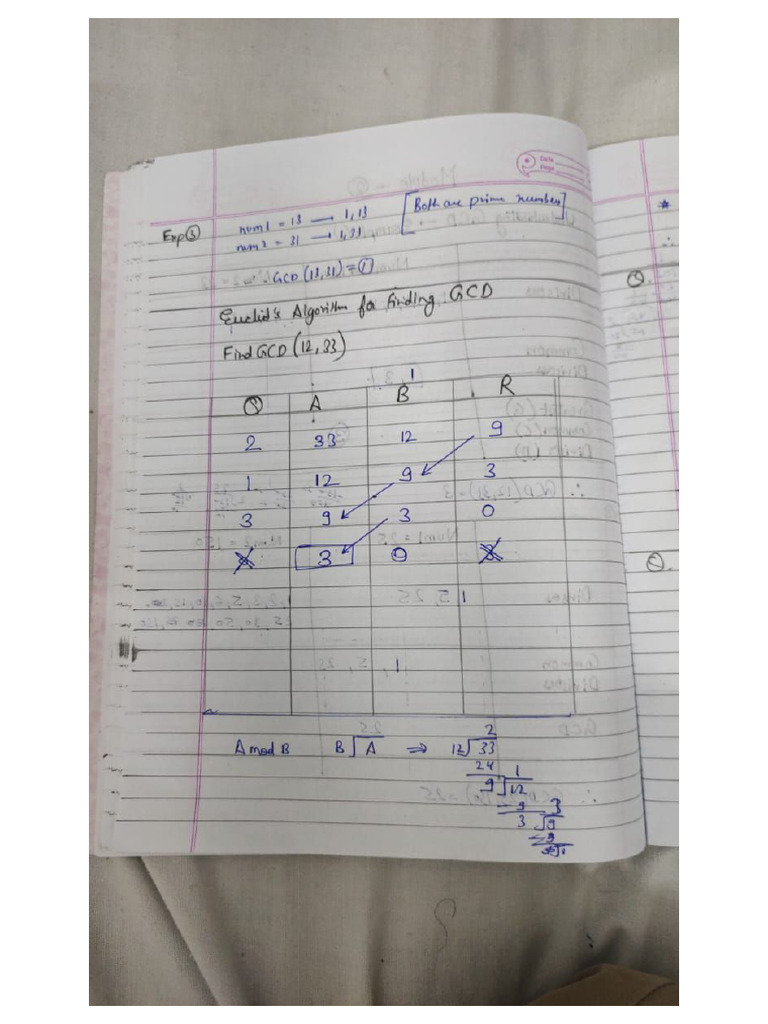 Date
Page
Exp ③ num1 = 13 → 1, 13 [Both are prime number]
num2 = 31 → 1, 31
GCD (13, 31) = ①
Euclid's Algorithm for finding GCD
Find GCD (12, 33)
Q A B R
2 33 12 9
1 12 9 3
3 9 3 0
X 3 0 X
A mod B B√A ⇒ 12√33
2
24
9√12
1
9
3√9
3
9
*
∴
Q.
Q.